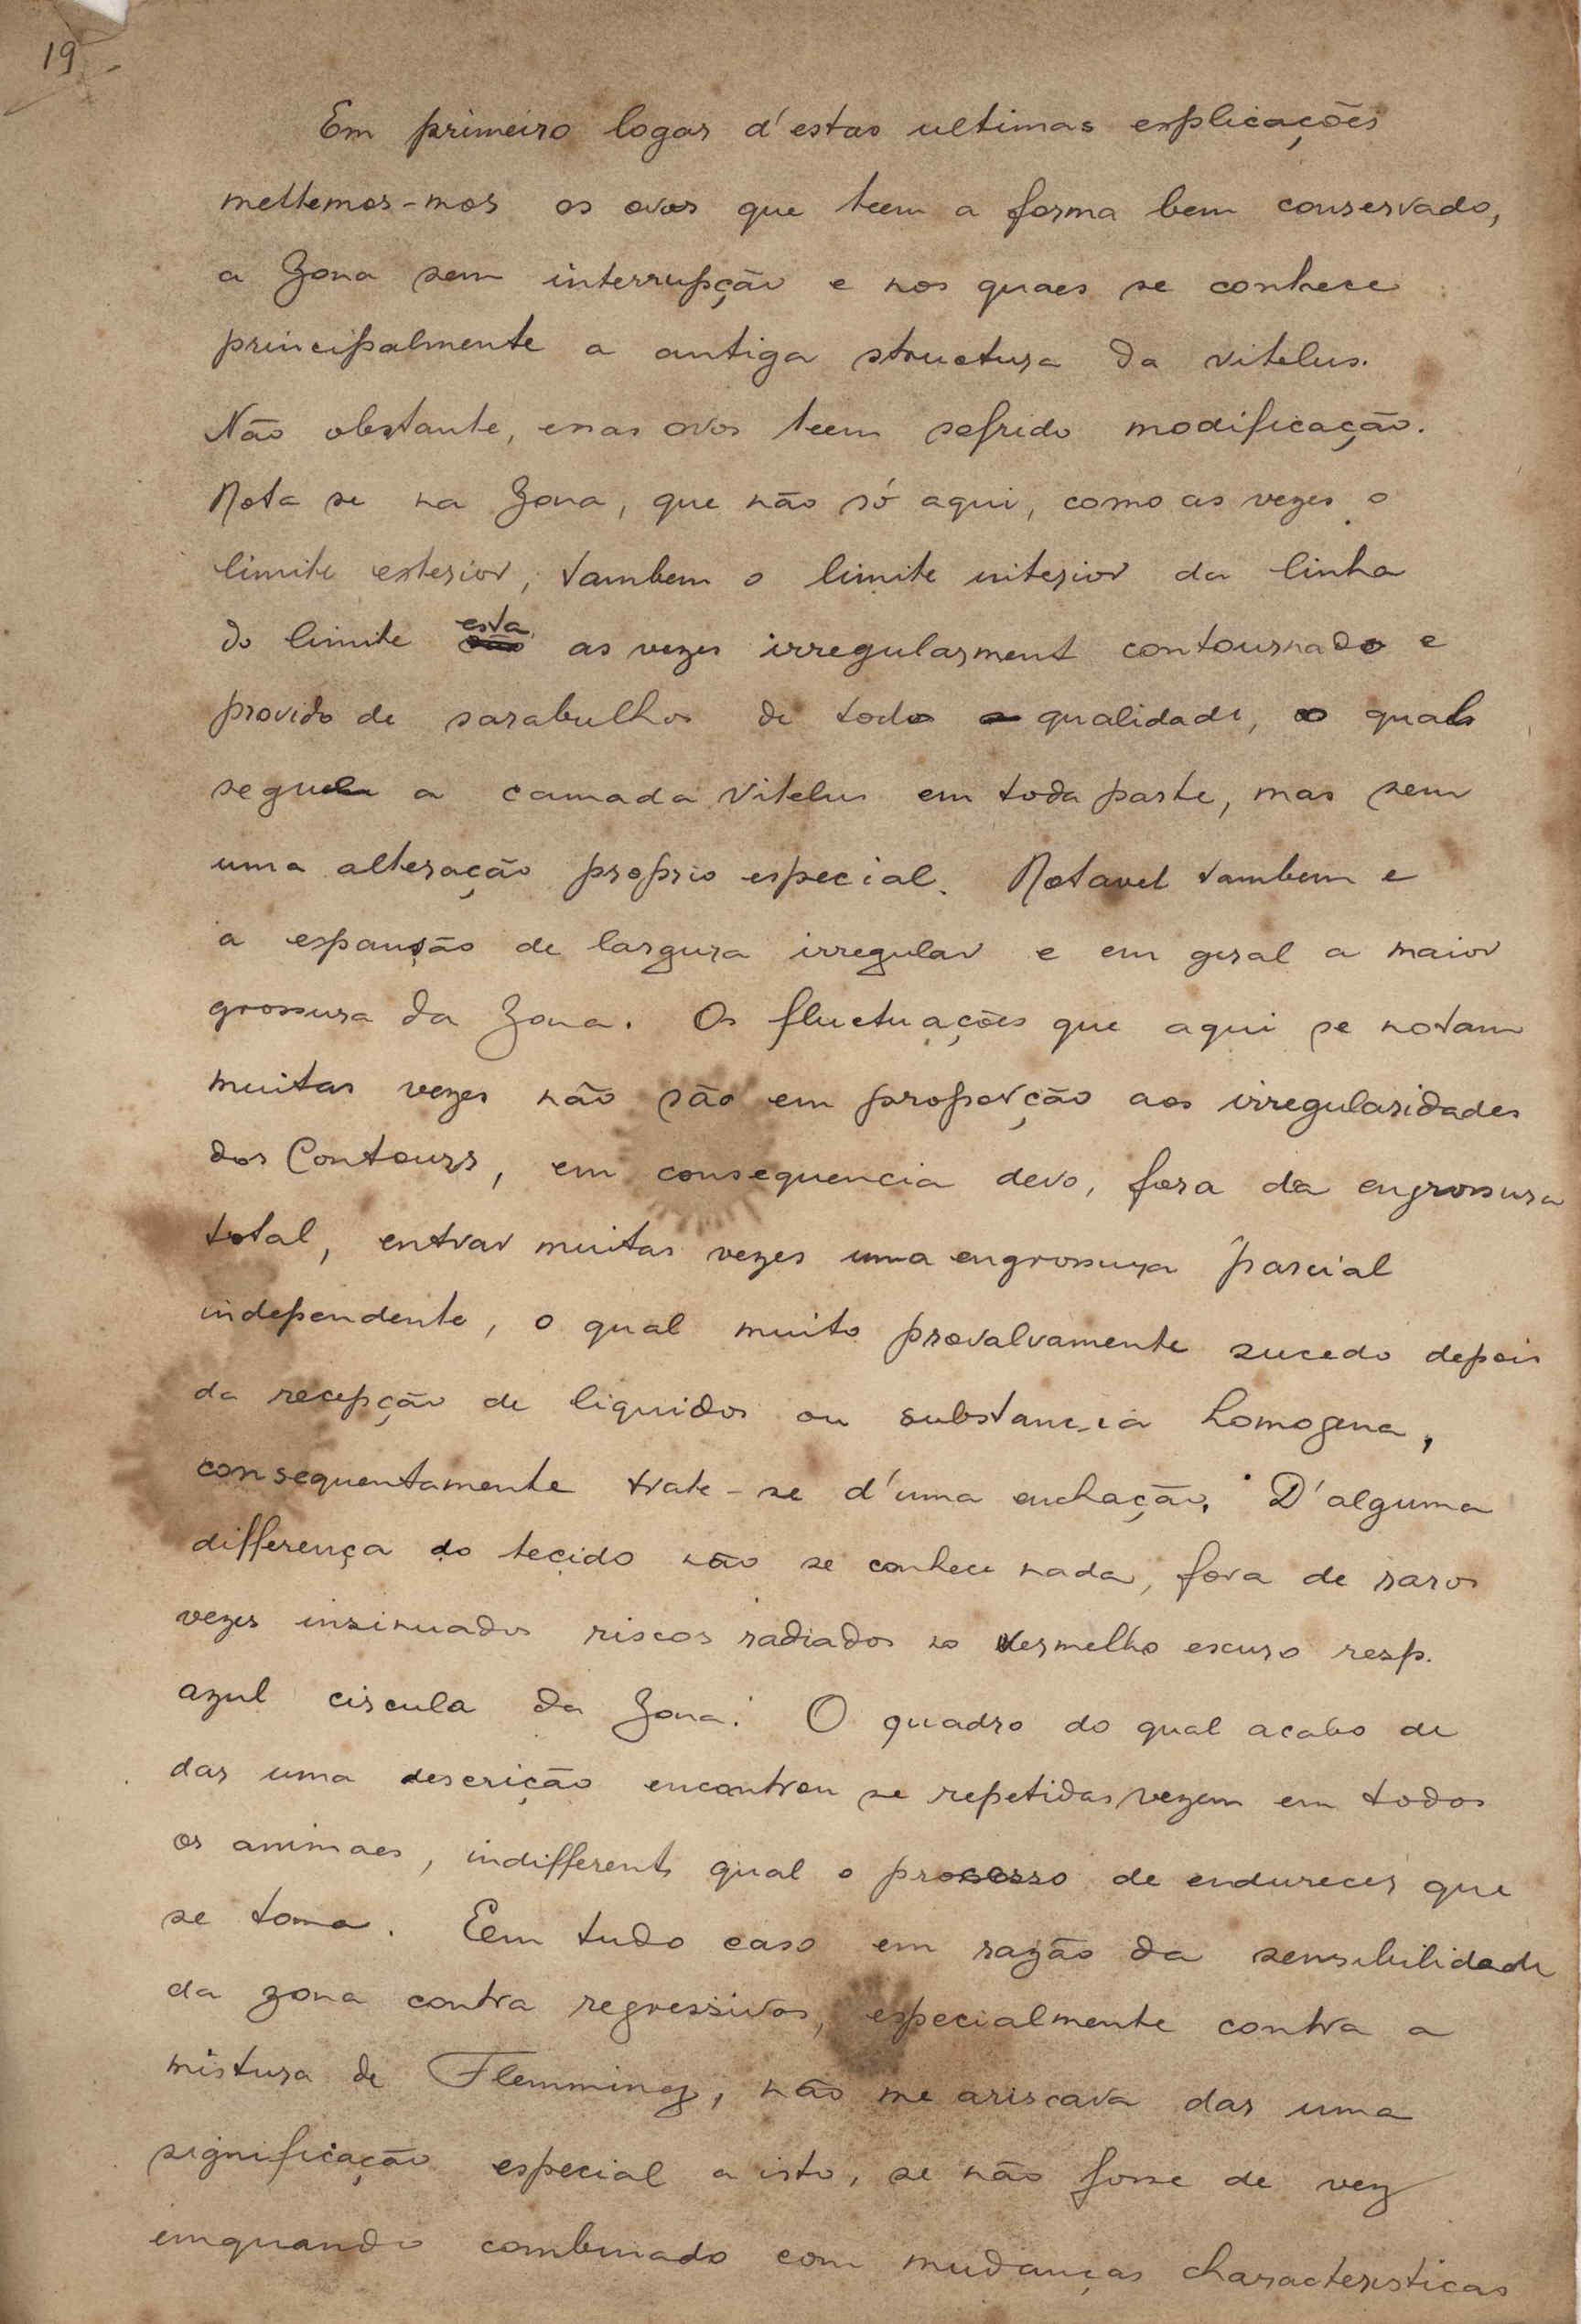 19 -
Em primeiro logar d'estas ultimas explicações
mettemos-mos os ovos que teem a forma bem conservado,
a Zona sem interrupção e nos quaes se conhece
principalmente a antiga structura da vitelus.
Não obstante, esses ovos teem sofrido modificação.
Nota se na Zona, que não só aqui, como as vezes o
limite exterior, tambem o limite interior da linha
do limite esta as vezes irregularment contournado e
provido de sarabulhos de todo qualidade, o qual
segue a camada vitelus em toda parte, mas sem
uma alteração proprio especial. Notavel tambem e
a expansão de largura irregular e em geral a maior
grossura da Zona. Os fluctuações que aqui se notam
muitas vezes não são em proporção aos irregularidades
dos Contours, em consequencia devo, fora da engrossura
total, entrar muitas vezes uma engrossura parcial
independente, o qual muito provalvamente sucedo depois
da recepção de liquidos ou substancia homogena,
consequentamente trate-se d'uma enchação. D'alguma
differença do tecido não se conhece nada, fora de raros
vezes insinuados riscos radiados no vermelho escuro resp.
azul circula da Zona. O quadro do qual acabo de
dar uma descrição encontrou se repetidas vezem em todos
os animaes, indifferents qual o processo de endurecer que
se toma. Eem tudo caso em razão da sensibilidade
da zona contra regressivos, especialmente contra a
mistura de Flemming, não me ariscava dar uma
significação especial a isto, se não fosse de vez
emquando combinado com mudanças characteristicas